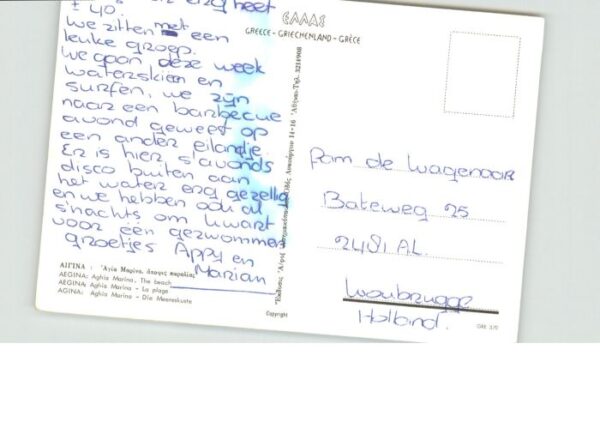 erg heet
± 40.
We zitten met een
leuke groep.
We gaan deze week
waterskien en
surfen, we zijn
naar een barbecue
avond geweest op
een ander eilandje.
Er is hier s'avonds
disco buiten aan
het water erg gezellig
en we hebben ook al
s'nachts om kwart
voor één gezwommen
groetjes Appy en
Marian
ΑΙΓΙΝΑ : Ἁγία Μαρίνα, ἄποψις παραλίας
AEGINA: Aghia Marina. The beach
AEGINA: Aghia Marina - La plage
AGINA: Aghia Marina - Die Meereskuste
14-16 Ἀθῆναι-Τηλ. 3214908
Copyright
ΕΛΛΑΣ
GREECE - GRIECHENLAND - GRÈCE
Pam de Wagenaar
Bateweg 25
2481 AL.
Woubrugge
Holland.